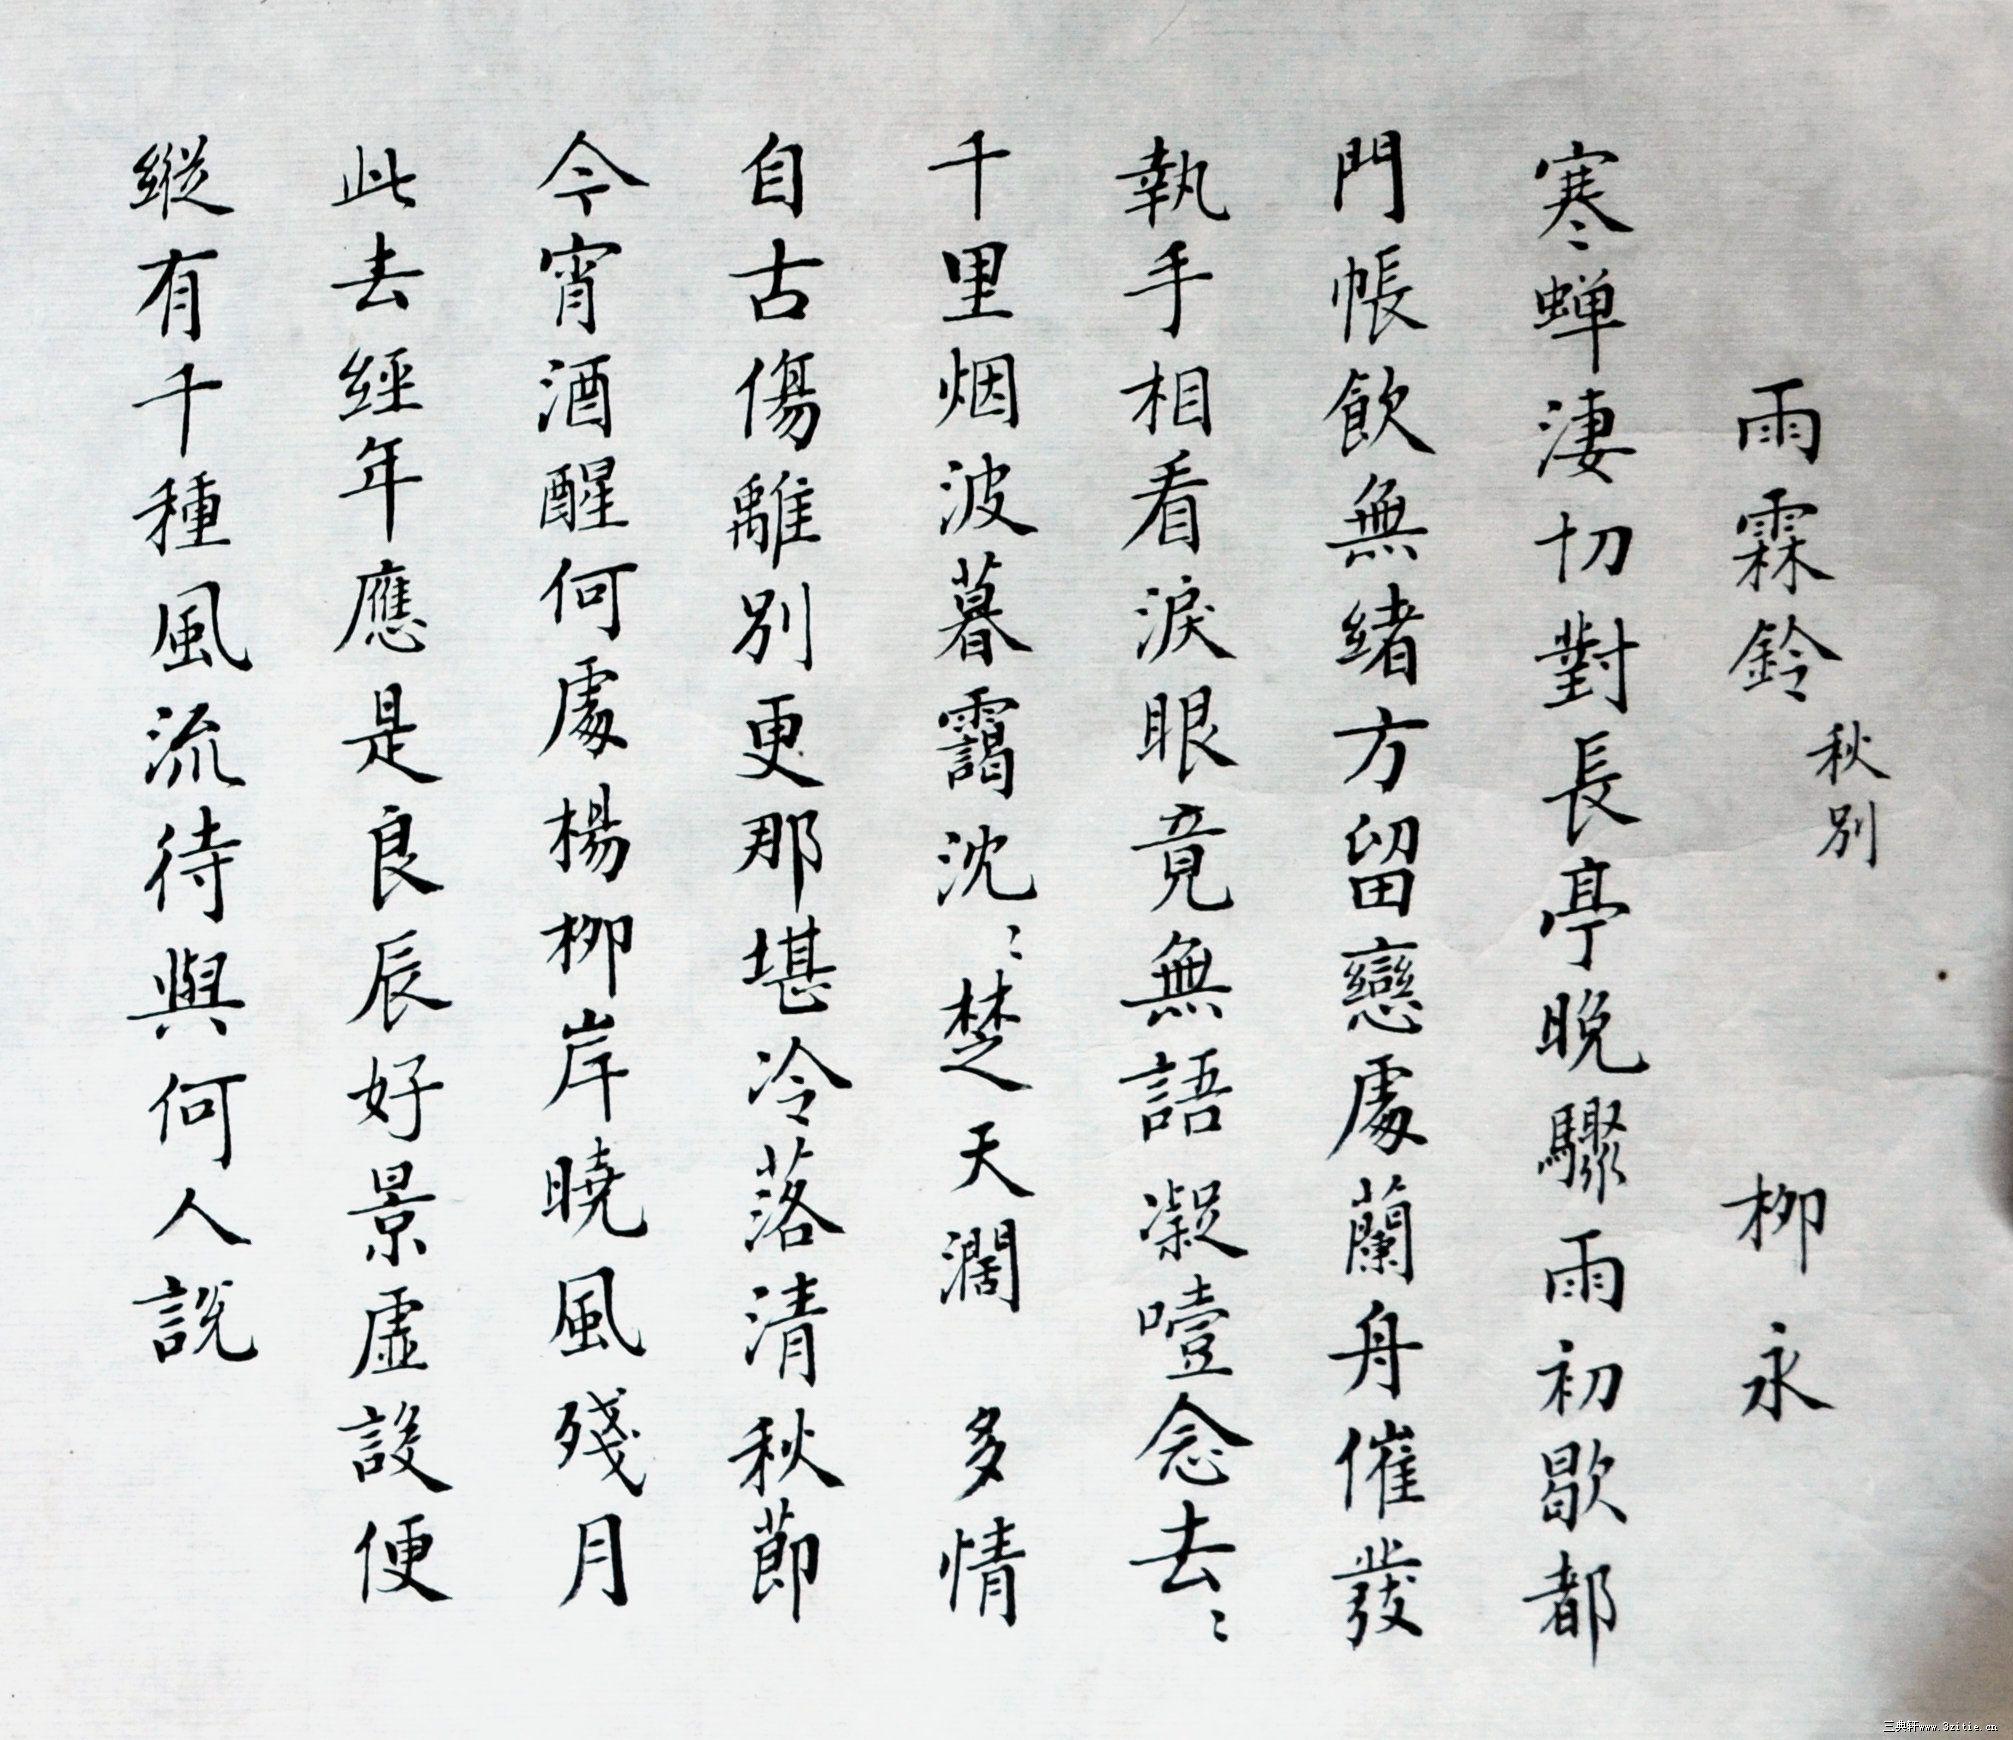 雨霖鈴 秋別 柳永
寒蝉淒切對長亭晚驟雨初歇都
門帳飲無緒方留戀處蘭舟催發
執手相看淚眼竟無語凝噎念去〻
千里烟波暮靄沈〻楚天濶 多情
自古傷離別更那堪冷落清秋節
今宵酒醒何處楊柳岸曉風殘月
此去經年應是良辰好景虛設便
縱有千種風流待與何人說
三典軒www.3zitie.cn